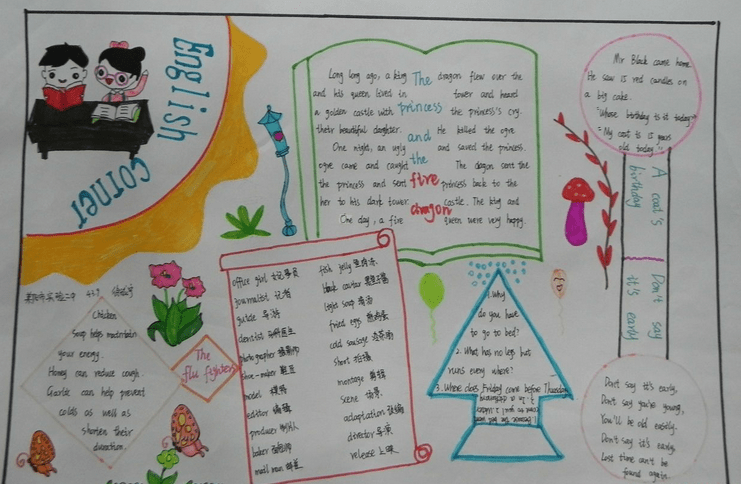 English
corner
Long long ago, a king
and his queen lived in
a golden castle with
their beautiful daughter.
One night, an ugly
ogre came and caught
the princess and sent
her to his dark tower.
One day, a fire
The
princess
and
the
fire
dragon
dragon flew over the
tower and heard
the princess's cry.
He killed the ogre
and saved the princess.
The dragon sent the
princess back to the
castle. The king and
queen were very happy.
Mr Black came home.
He saw 15 red candles on
a big cake.
"Whose birthday is it today?"
"My coat is 15 years
old today."
A coat's
birthday
Don't say
it's early
Don't say it's early,
Don't say you're young,
You'll be old easily.
Don't say it's early,
Lost time can't be
found again.
Chicken
Soup helps
your energy.
Honey can reduce cough.
Garlic can help prevent
colds as well as
shorten their
duration.
The
flu fighters
office girl
journalist 记者
guide 导游
dentist 牙科医生
photographer 摄影师
shoe-maker 鞋匠
model 模特
editor 编辑
producer 制片人
baker
mail man 邮差
fish jelly
black caviar
light soup 清汤
fried eggs 煎鸡蛋
cold sausage
short 短片
montage 剪辑
scene 场景
adaptation 改编
director 导演
release 上映
1. Why
do you have
to go to bed?
2. What has no legs but
runs every where?
3. Where does Friday come before Thursday